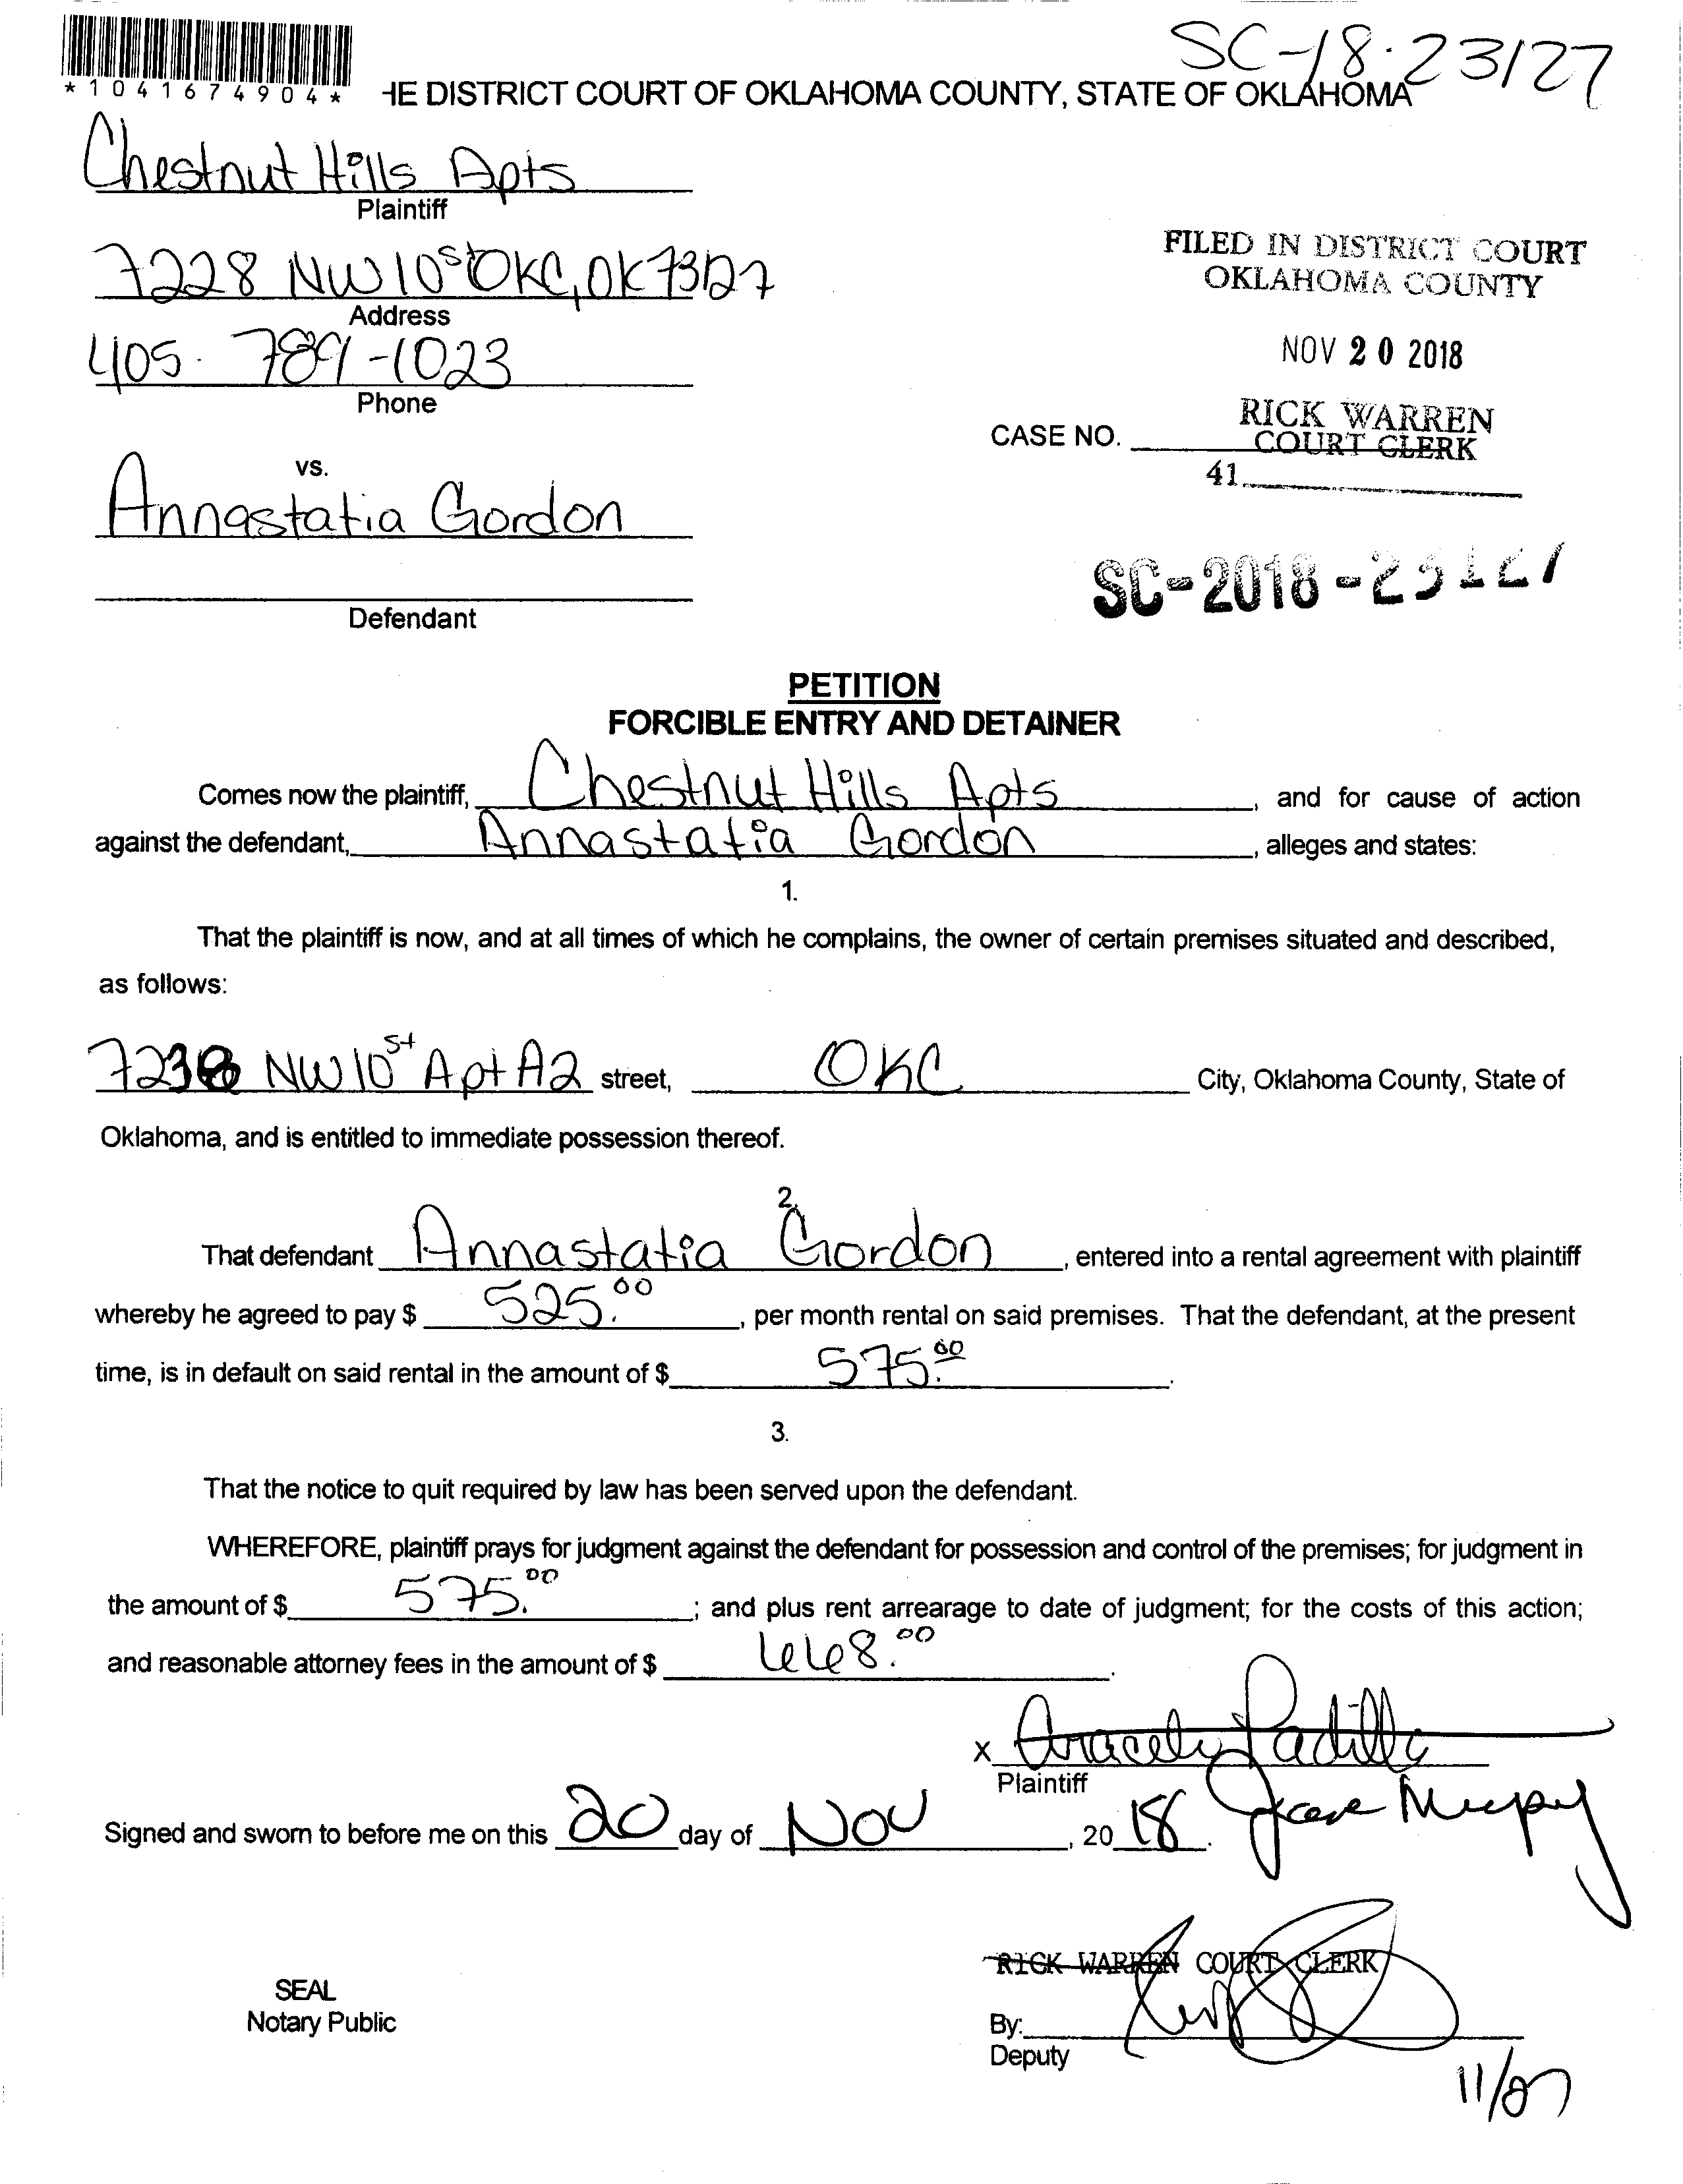 SC-18-23127
*1041674904*
HE DISTRICT COURT OF OKLAHOMA COUNTY, STATE OF OKLAHOMA
Chestnut Hills Apts
Plaintiff
7228 NW 10st OKC, OK 73127
Address
405-789-1023
Phone
FILED IN DISTRICT COURT
OKLAHOMA COUNTY
NOV 20 2018
RICK WARREN
COURT CLERK
CASE NO.
41
vs.
Annastatia Gordon
Defendant
SC-2018-23127
PETITION
FORCIBLE ENTRY AND DETAINER
Comes now the plaintiff, Chestnut Hills Apts, and for cause of action
against the defendant, Annastatia Gordon, alleges and states:
1.
That the plaintiff is now, and at all times of which he complains, the owner of certain premises situated and described,
as follows:
7238 NW 10st Apt A2 street, OKC City, Oklahoma County, State of
Oklahoma, and is entitled to immediate possession thereof.
2.
That defendant Annastatia Gordon, entered into a rental agreement with plaintiff
whereby he agreed to pay $ 525.00, per month rental on said premises. That the defendant, at the present
time, is in default on said rental in the amount of $ 575.00.
3.
That the notice to quit required by law has been served upon the defendant.
WHEREFORE, plaintiff prays for judgment against the defendant for possession and control of the premises; for judgment in
the amount of $ 575.00; and plus rent arrearage to date of judgment; for the costs of this action;
and reasonable attorney fees in the amount of $ 668.00.
x Aracely Padilla
Plaintiff
Signed and sworn to before me on this 20 day of Nov, 2018.
RICK WARREN COURT CLERK
SEAL
Notary Public
By:
Deputy
11/27